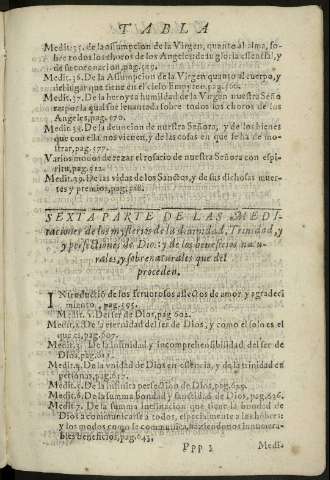 TABLA
Medit. 35. de la assumpcion de la Virgen, quanto al alma, so-
bre todos los choros de los Angeles: de su gloria essencial, y
de su coronacion, pag. 559.
Medit. 36. De la Assumpcion de la Virgen quanto al cuerpo, y
del lugar que tiene en el cielo Empyreo, pag. 566.
Medit. 37. De la heroyca humildad de la Virgen nuestra Seño
ra, por la qual fue leuantada sobre todos los choros de los
Angeles, pag. 570.
Medit. 38. De la deuocion de nuestra Señora, y de los bienes
que con ella nos vienen, y de las cosas en que se ha de mo-
strar, pag. 577.
Varios modos de rezar el rosario de nuestra Señora con espi-
ritu, pag.
Medit. 39. De las vidas de los Sanctos, y de sus dichosas muer-
tes y premios, pag. 588.
SEXTA PARTE DE LAS MEDI-
taciones de los mysterios de la diuinidad, Trinidad, y
y perfectiones de Dios: y de los beneficios natu-
rales, y sobrenaturales que del
proceden.
INtroductiō de los feruorosos affectos de amor, y agradeci
miento, pag. 595.
Medit. 1. Del ser de Dios, pag. 602.
Medit. 2. De la eternidad del ser de Dios, y como el solo es el
que es, pag. 607.
Medit. 3. De la infinidad, y incomprehensibilidad del ser de
Dios, pag. 611.
Medit. 4. De la vnidad de Dios en essencia, y de la trinidad en
personas, pag. 617.
Medit. 5. De la infinita perfection de Dios, pag. 625.
Medit. 6. De la summa bondad y sanctidad de Dios, pag. 636.
Medit. 7. De la summa inclinacion que tiene la bondad de
Dios a comunicarse a todos, especialmente a los hōbres:
y los modos como se comunica, haziendonos innumera-
bles beneficios, pag. 643.
Ppp 2 Medit.